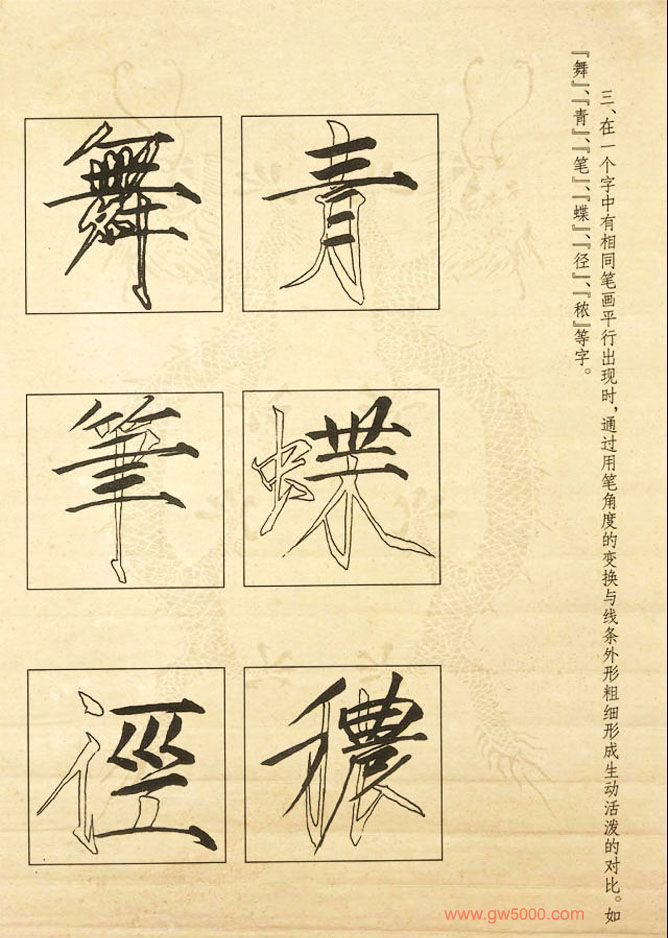 三、在一个字中有相同笔画平行出现时，通过用笔角度的变换与线条外形粗细形成生动活泼的对比。如
『舞』、『青』、『笔』、『蝶』、『径』、『秾』等字。
青
舞
蝶
筆
穠
徑
www.gw5000.com